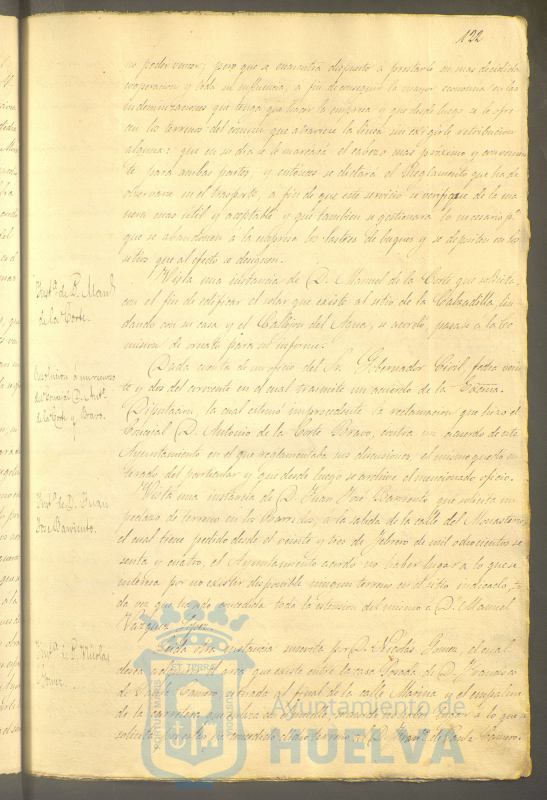 122
no poder vencer; pero que se encuentra dispuesto a prestarle su mas decidida
cooperacion y toda su influencia, a fin de conseguir la mayor economia en las
indemnizaciones que tenga que hacer la empresa y que desde luego se le ofre
cen los terrenos del comun que atraviese la linea sin exigirle retribucion
alguna: que en su dia se le marcará el cabezo mas próximo y convenien
te para ambas partes, y entonces se dictará el Reglamento que ha de
observarse en el trasporte, a fin de que este servicio se verifique de la ma
nera mas util y aceptable y que tambien se gestionará lo necesario pª
que se abandonen á la empresa los lastres de buques y se depositen en los
sitios que al efecto se designen.
Instª de D. Manl
de la Corte.
Vista una instancia de D. Manuel de la Corte que solicita
con el fin de edificar el solar que existe al sitio de la Calzadilla, lin
dando con su casa y el Callejon del Agua, se acordó, pasase a la Co
mision de ornato para su informe.
del Concejal D. Antº
de la Corte y Bravo.
Dada cuenta de un oficio del Sr. Gobernador Civil, fecha vein
te y dos del corriente en el cual trasmite un acuerdo de la Excma.
Diputacion, la cual estimó improcedente la reclamacion que hizo el
Concejal D. Antonio de la Corte Bravo, contra un acuerdo de este
Ayuntamiento en el que reglamentaba sus discusiones, el mismo quedó en
terado del particular y que desde luego se archive el mencionado oficio.
Instª de D. Juan
José Barriento.
Vista una instancia de D. Juan José Barriento que solicita un
pedazo de terreno en los Barriales, á la salida de la calle del Monasterio,
el cual tiene pedido desde el veinte y tres de febrero de mil ochocientos se
senta y cuatro, el Ayuntamiento acordó no haber lugar a lo que se
interesa por no existir disponible ningun terreno en el sitio indicado, to
da vez que ha sido concedida toda la estension del mismo a D. Manuel
Vazquez Lopez.
Instª de D. Nicolas
Gomez.
Leida otra instancia suscrita por D. Nicolas Gomez, el cual
desea adquirir el area que existe entre la casa Posada de D. Francisco
de Paula Camero, situado al final de la calle Marina y el empalme
de la carretera que
solicita concedido dicho terreno á D. Franº de Paula Camero.
Ayuntamiento de
HUELVA